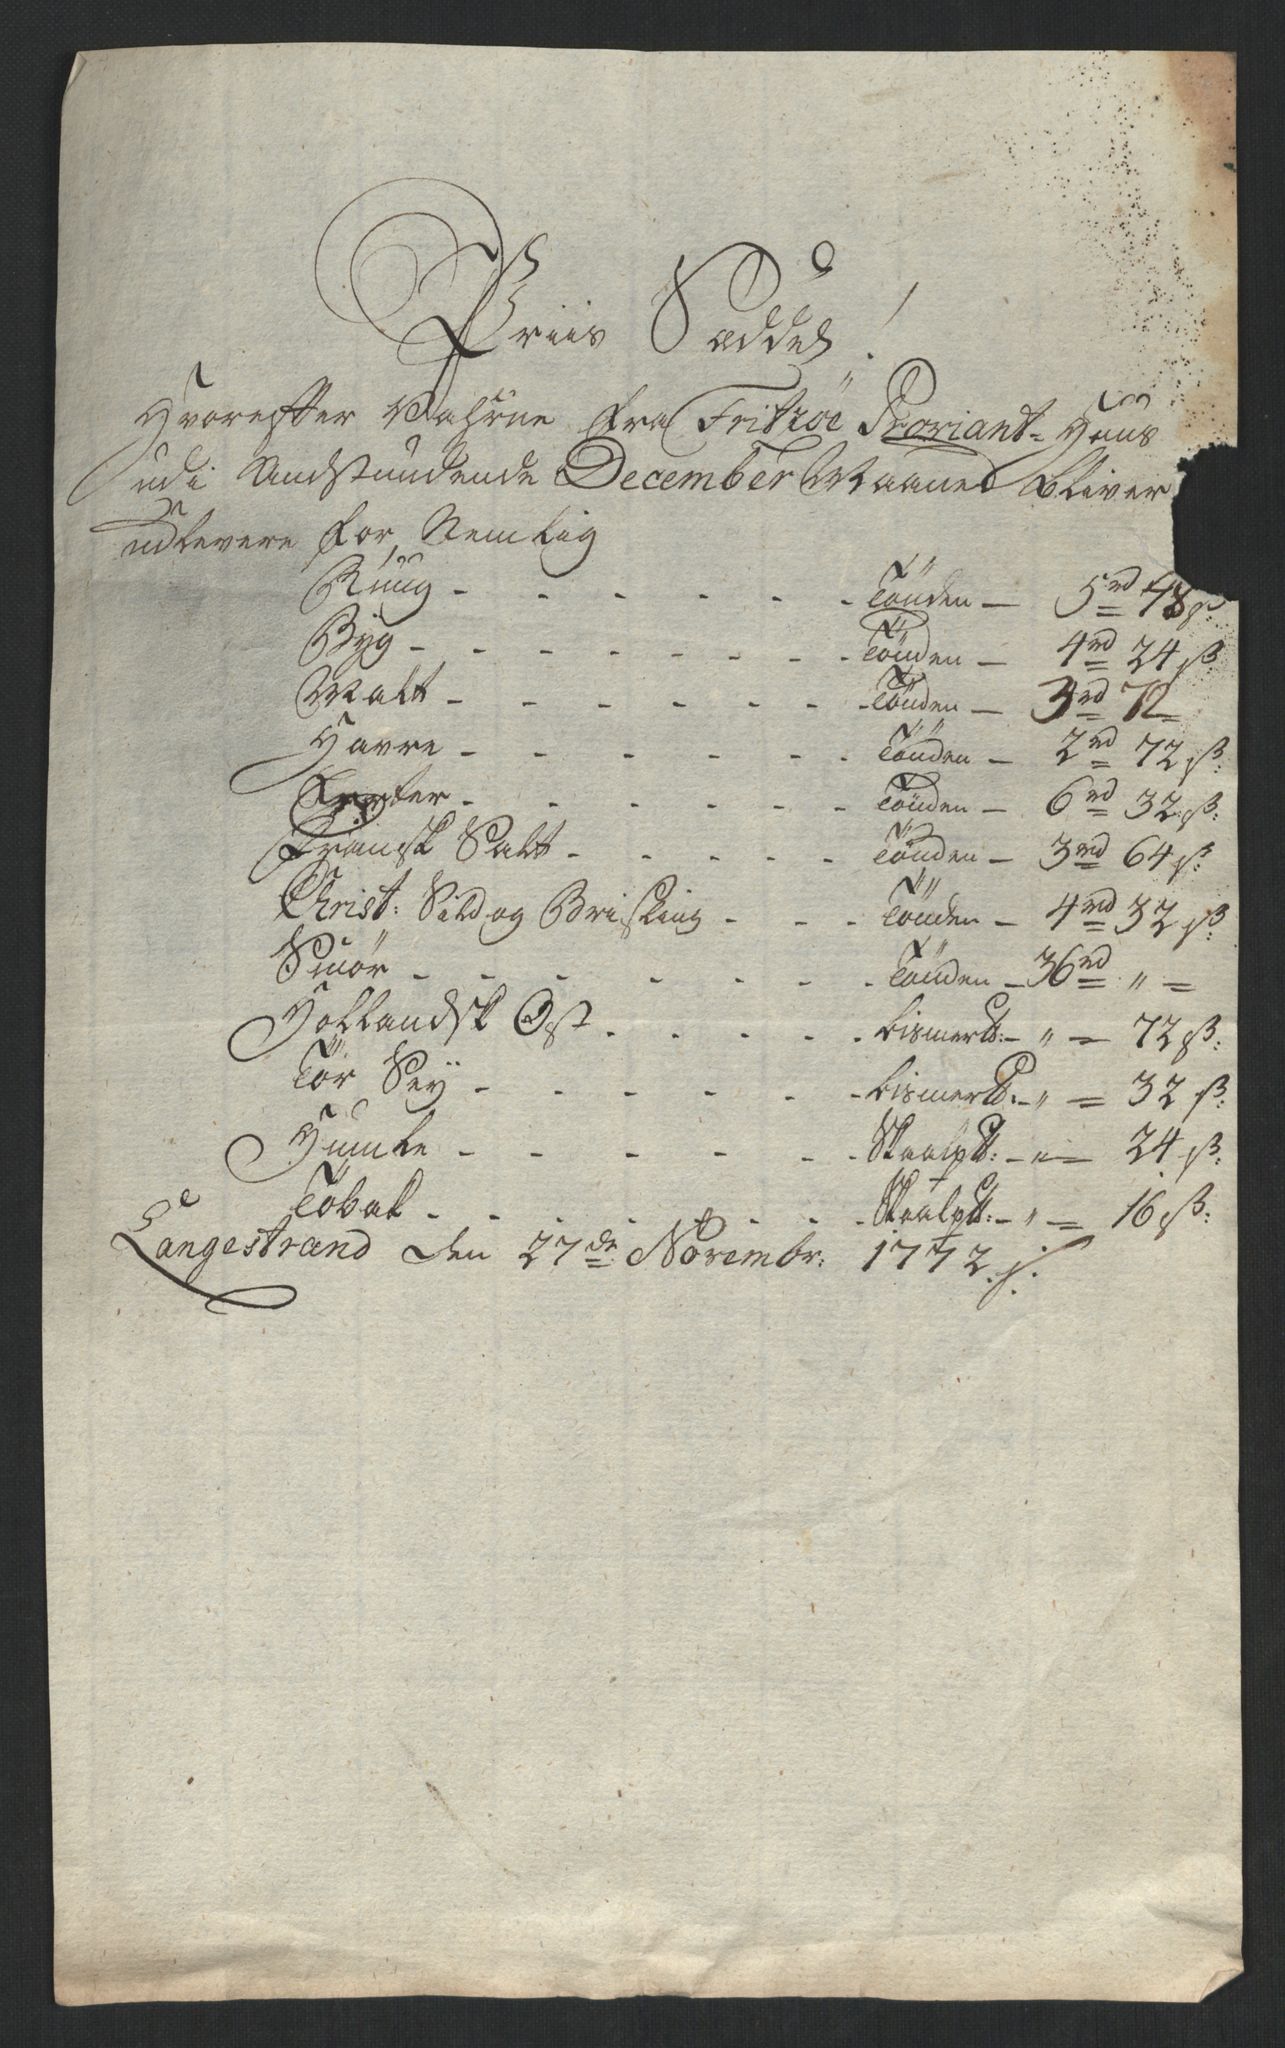 Priis Sæddel!
Hvorefter Vahrne fra Fritzöe Proviant= Huus
udi Andstundende December Maaned bliver
udlevere for, Nemlig
Rüug - - - - - - - Tönden — 5rd 48ß
Byg - - - - - - - - Tönden — 4rd 24ß
Malt - - - - - - - Tönden — 3rd 72
Havre - - - - - - - Tönden — 2rd 72ß:
Erter - - - - - - - Tönden — 6rd 32ß:
Fransk Salt - - - - - Tönden — 3rd 64ß:
Christ: Sild og Brisling - - - Tönden — 4rd 32ß:
Smör - - - - - - - Tönden — 36rd " =
Hollandsk Ost - - - - - bismert: — " = 72ß:
Tör Sey - - - - - - bismert: — " = 32ß:
Humle - - - - - - - Skaalpd: — " — 24ß:
Tobak - - - - - - - Skaalpd: — " = 16ß:
Langestrand den 27de Novembr: 1772